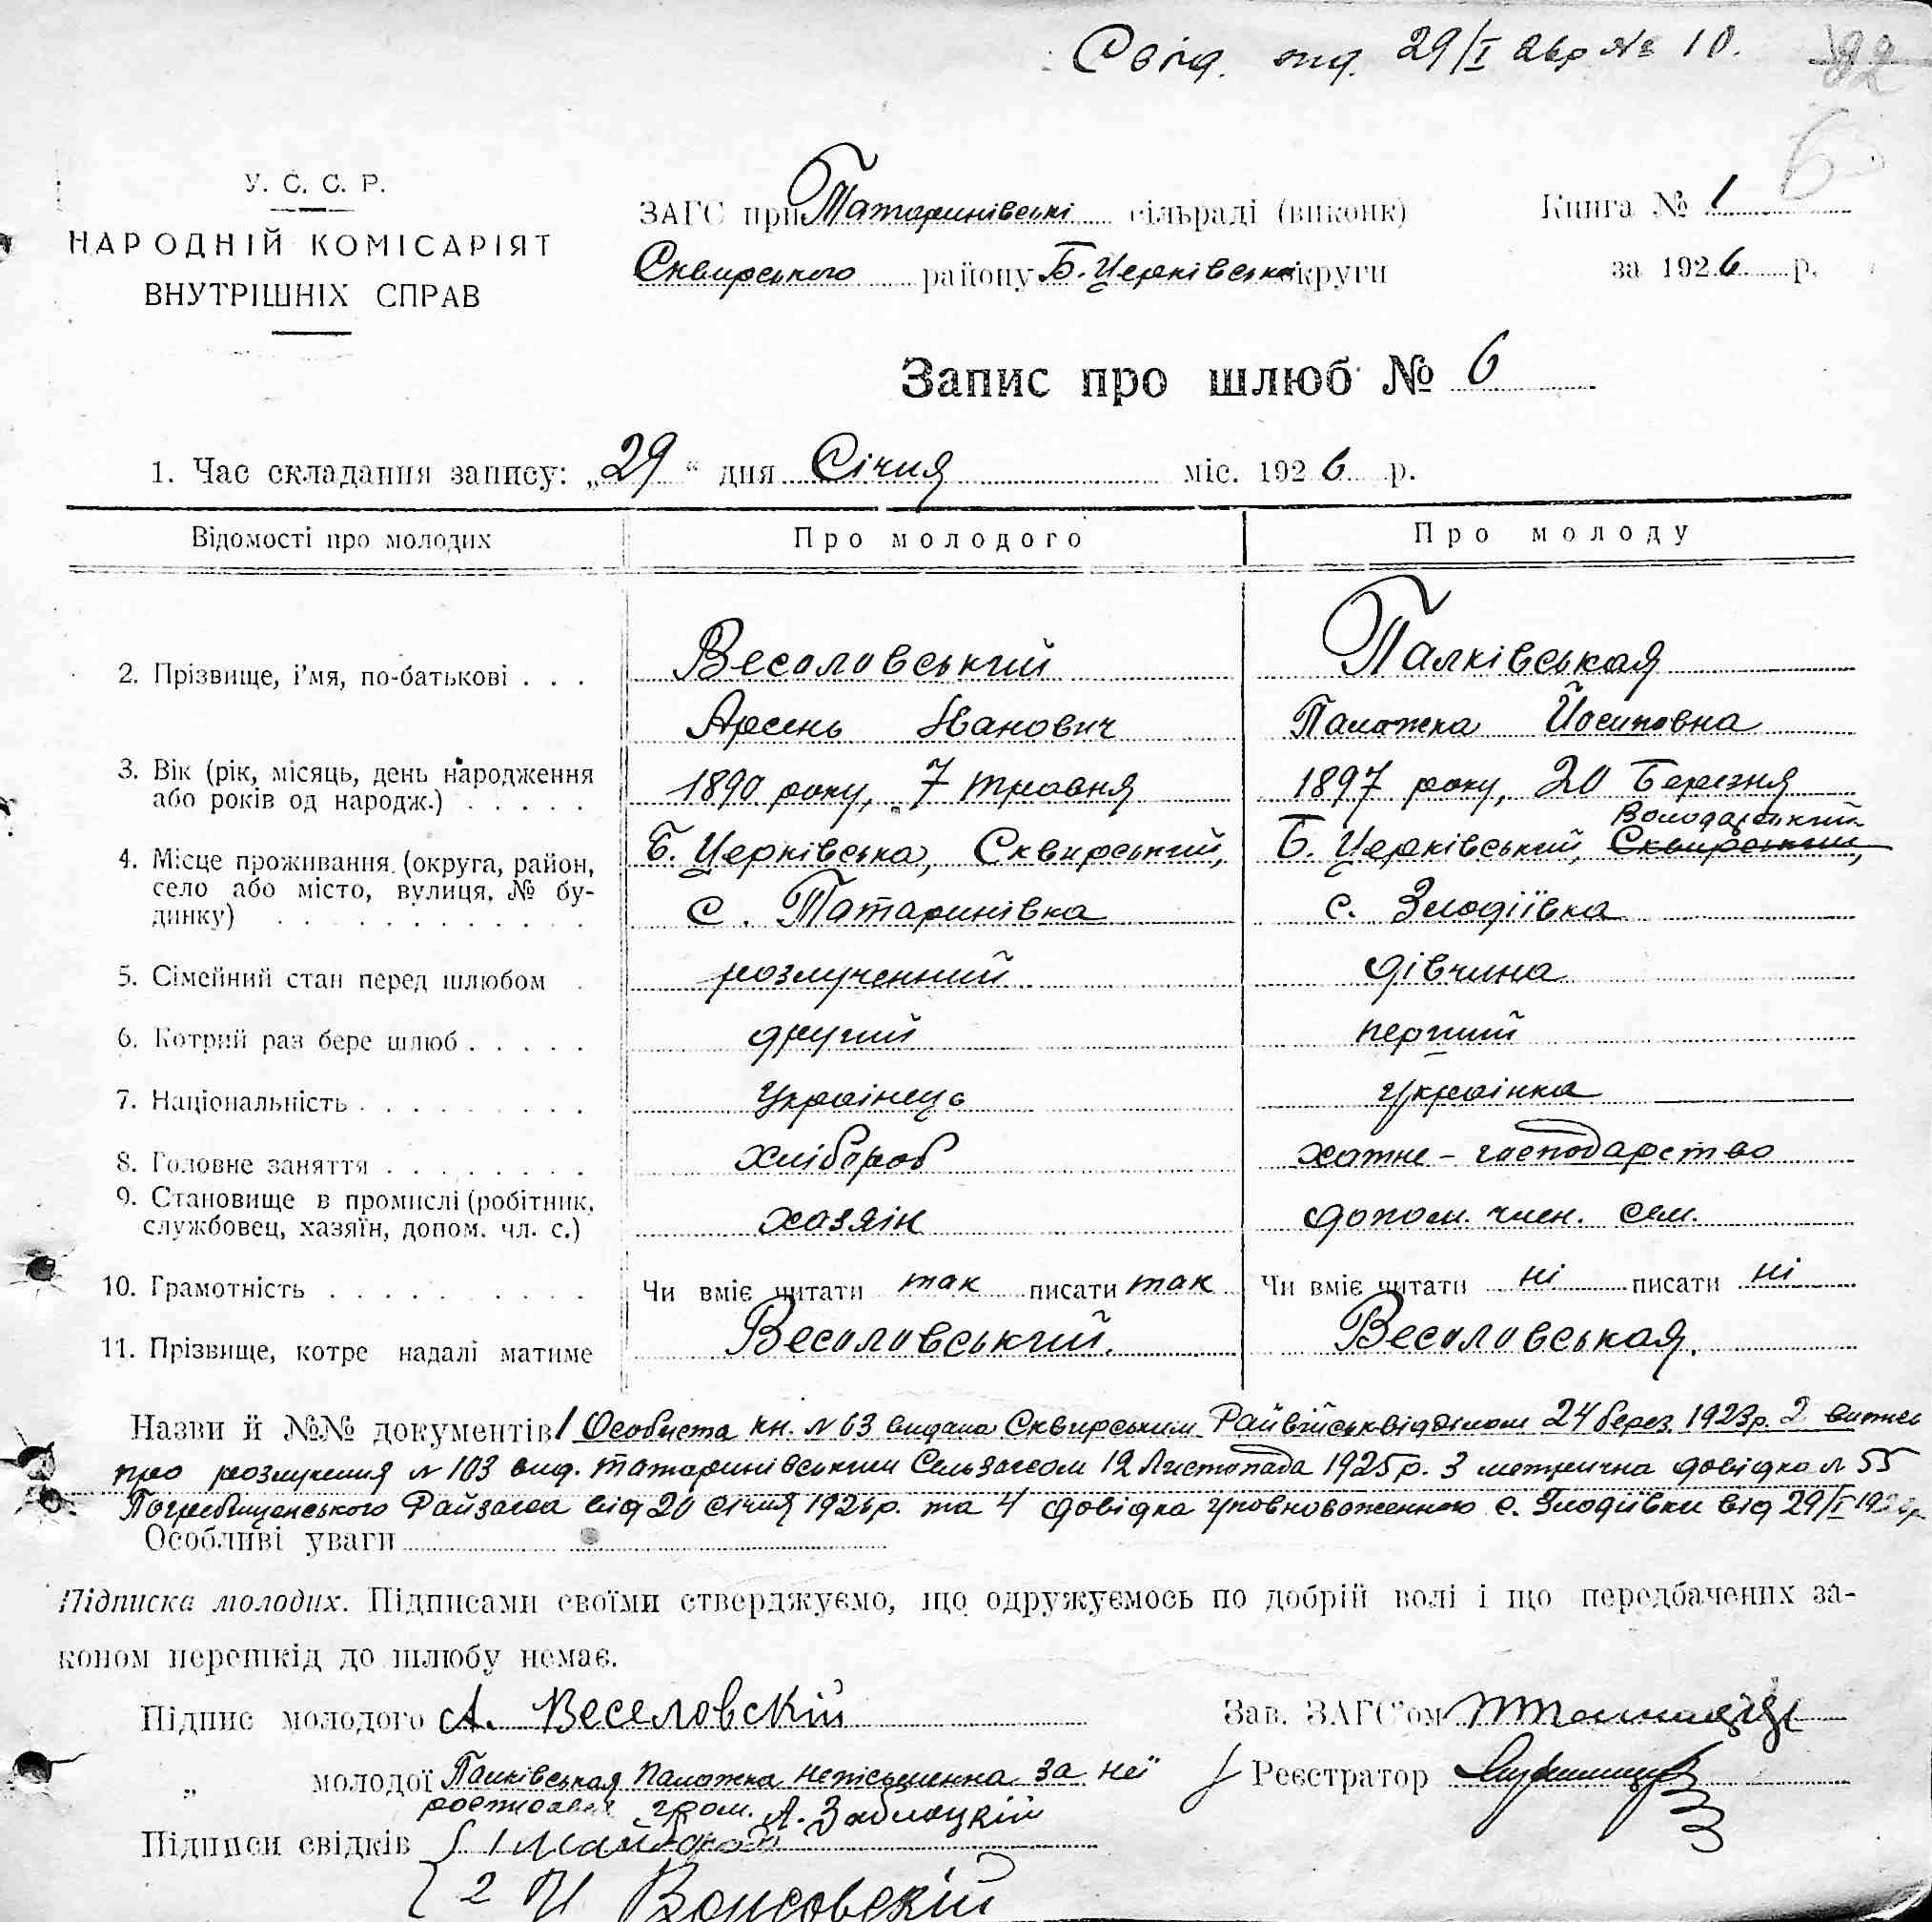 Свід. вид. 29/I 26р № 10.
У. С. С. Р.
НАРОДНІЙ КОМІСАРІЯТ
ВНУТРІШНІХ СПРАВ
ЗАГС при Татаринівські сільраді (виконк)
Сквирського району Б. Церківської округи
Книга № 1
за 1926 р.
Запис про шлюб № 6
1. Час складання запису: „29“ дня Січня міс. 1926 р.
Відомості про молодих Про молодого Про молоду
2. Прізвище, і'мя, по-батькові . . . Весоловський Палківськая
Арсень Іванович Палажка Йосиповна
3. Вік (рік, місяць, день народження
або років од народж.) . . . . . 1890 року, 7 травня 1897 року, 20 Березня
Володарський
4. Місце проживання (округа, район, Б. Церківська, Сквирський, Б. Церківський, Сквирський,
село або місто, вулиця, № бу-
динку) с. Татаринівка с. Злодіївка
5. Сімейний стан перед шлюбом . розлученний дівчина
6. Котрий раз бере шлюб . . . . . другий перший
7. Національність . . . . . . . . . Українець українка
8. Головне заняття . . . . . . . . хлібороб хатнє - господарство
9. Становище в промислі (робітник,
службовец, хазяїн, допом. чл. с.) хазяїн допом. член. сем.
10. Грамотність . . . . . . . . . . Чи вміє читати так писати так Чи вміє читати ні писати ні
11. Прізвище, котре надалі матиме Весоловський. Весоловськая.
Назви й №№ документів 1 Особиста кн. № 63 видана Сквирським Райвійськвідділом 24 берез. 1923р. 2 витяг
про розлучення № 103 вид. Татаринівським Сельзагсом 12 Листопада 1925р. 3 метрична довідка № 55
Погребищенського Райзагса від 20 січня 1926р. та 4 довідка уповноваженного с. Злодіївки від 29/I 1926р
Особливі уваги
Підписка молодих. Підписами своїми стверджуємо, що одружуємось по добрій волі і що передбачених за-
коном перешкід до шлюбу немає.
Підпис молодого А. Веселовскій
Зав. ЗАГС'ом
„ молодої Палківськая Палажка неписьменна за неї
Реєстратор
гром. А. Заблоцкій
Підписи свідків 1
2